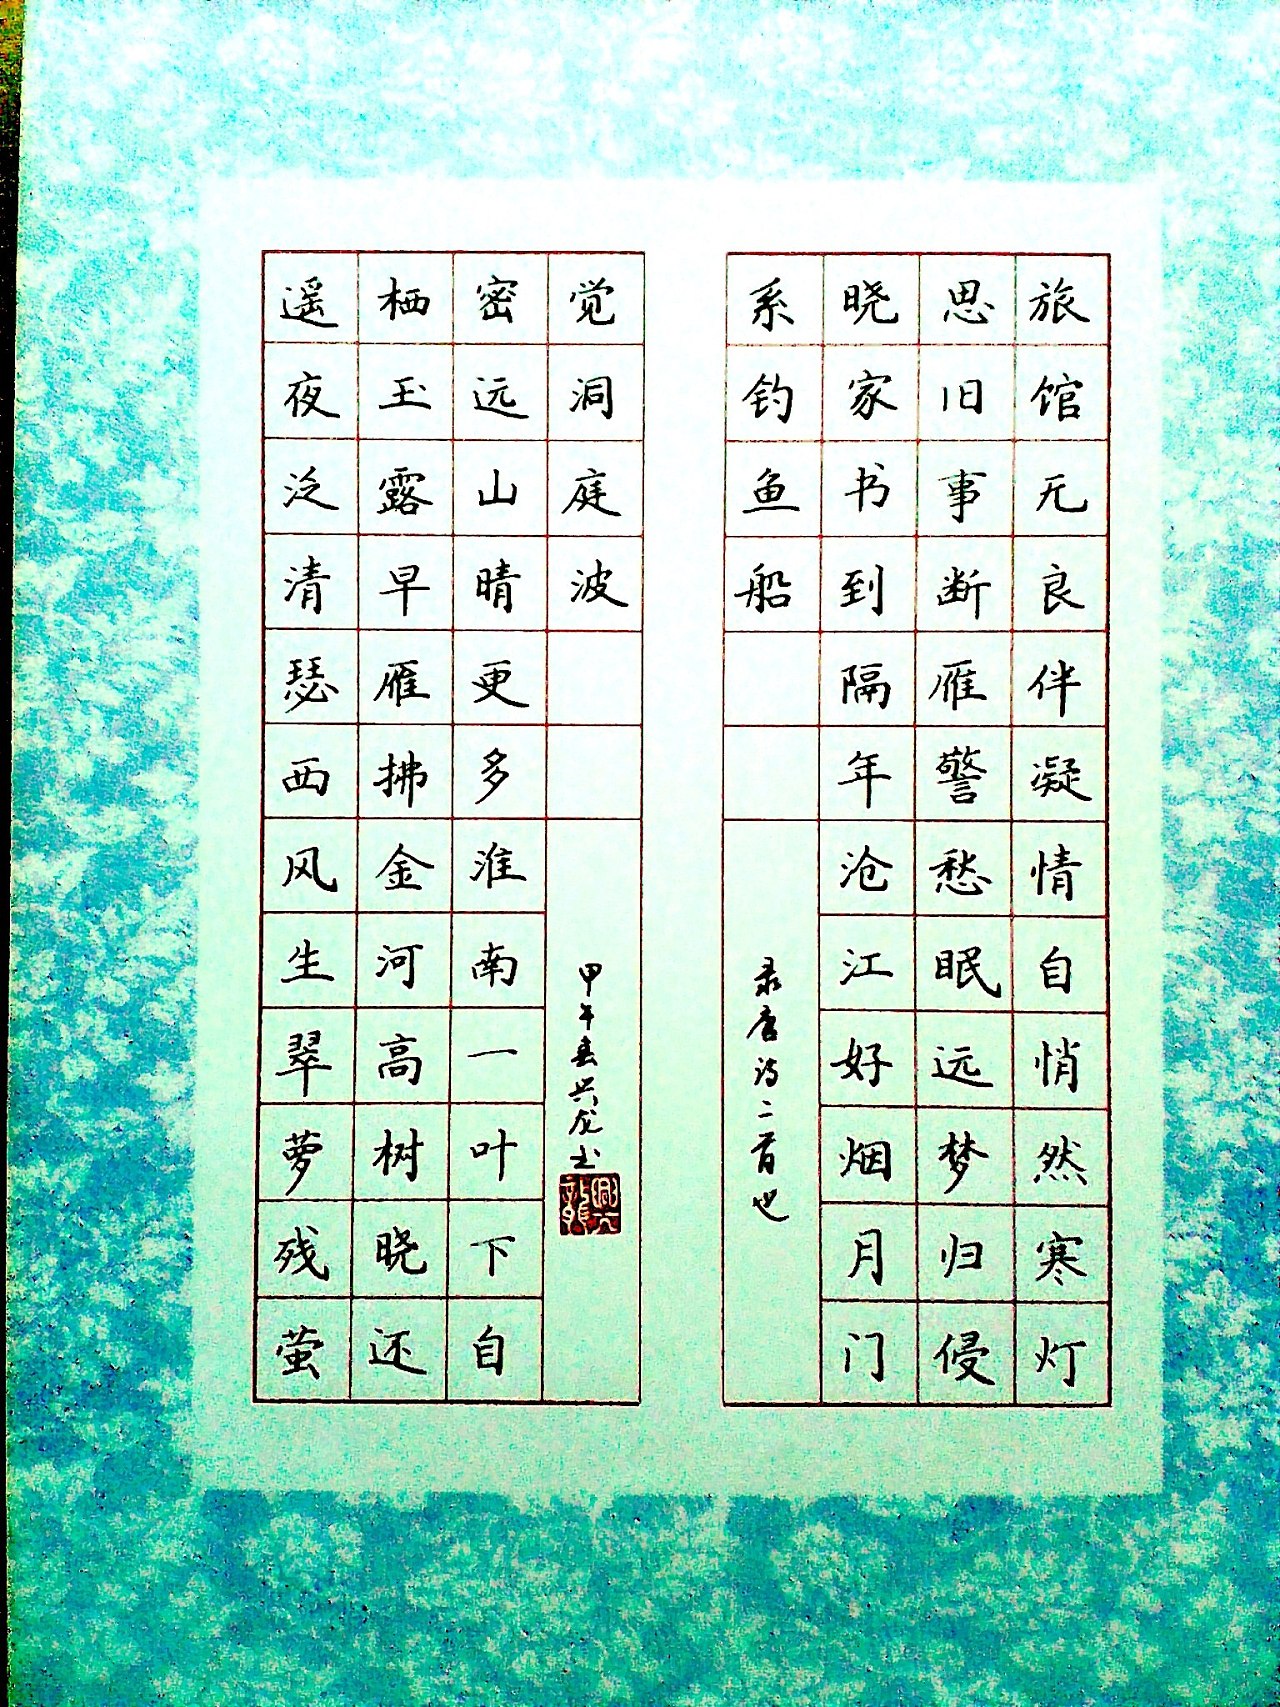 旅馆无良伴凝情自悄然寒灯
思旧事断雁警愁眠远梦归侵
晓家书到隔年沧江好烟月门
系钓鱼船
录唐诗二首也
遥夜泛清瑟西风生翠萝残萤
栖玉露早雁拂金河高树晓还
密远山晴更多淮南一叶下自
觉洞庭波
甲午春兴龙书